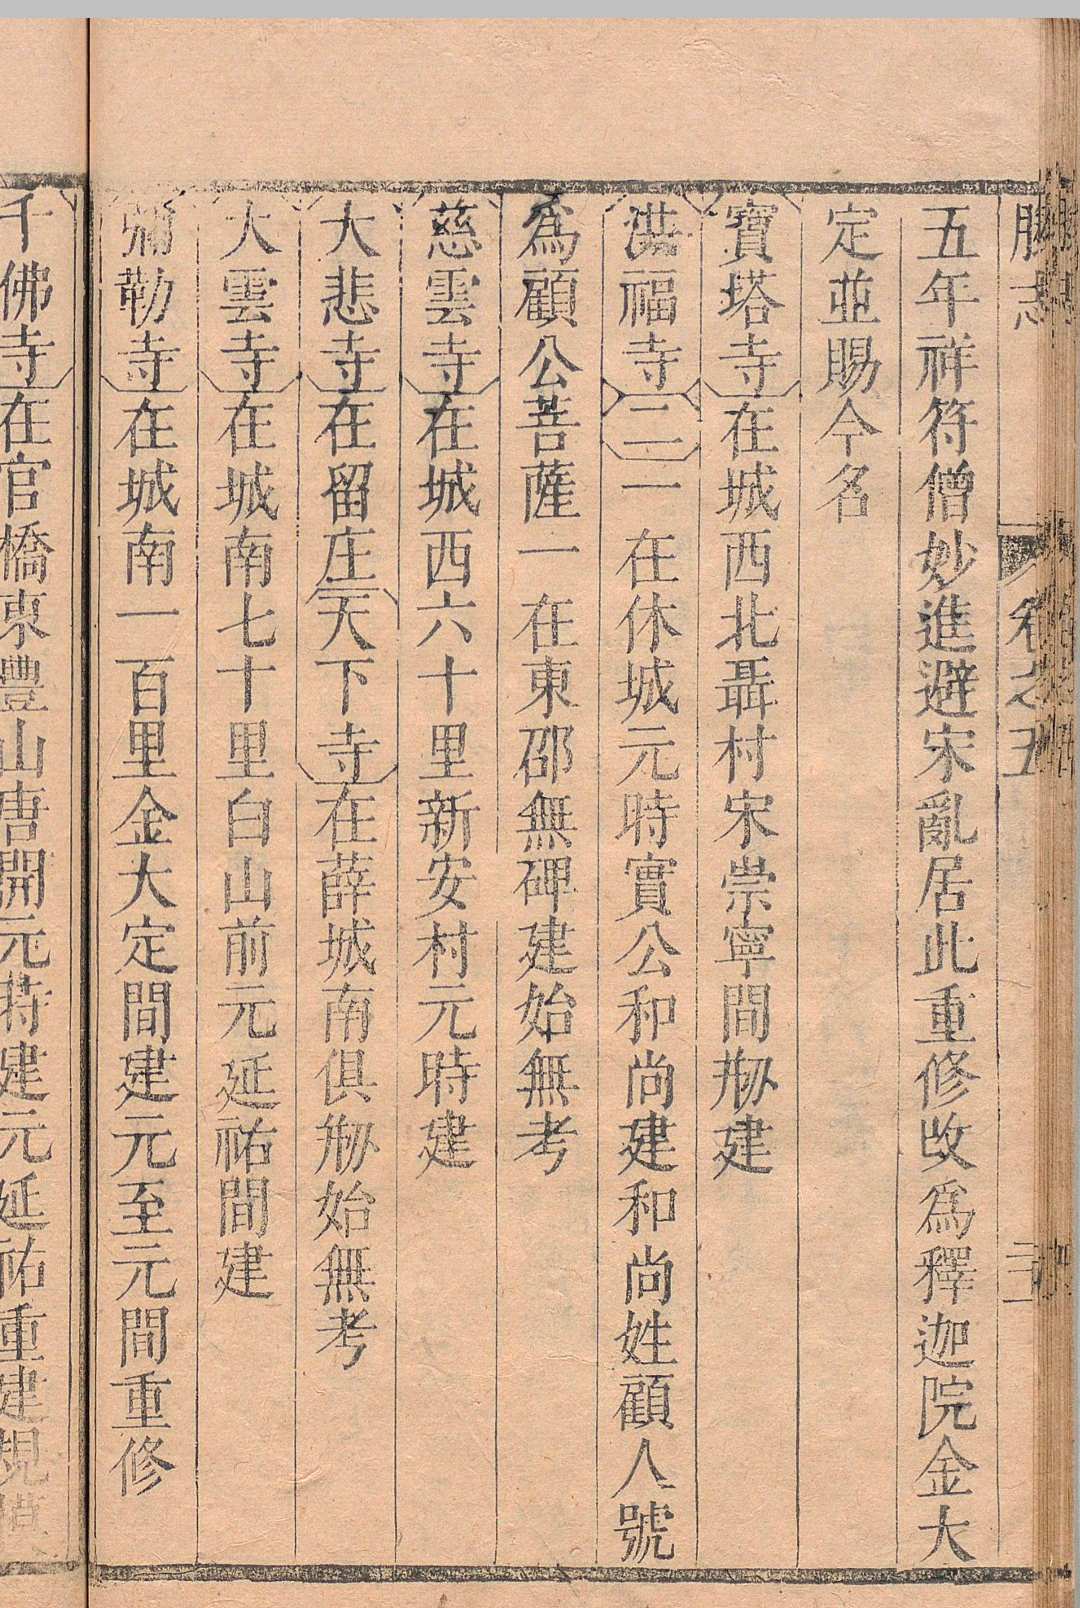 滕志 卷之五
五年祥符僧妙進避宋亂居此重修改爲釋迦院金大
定並賜今名
寶塔寺在城西北聶村宋崇寧間剏建
洪福寺二一在休城元時實公和尚建和尚姓顧人號
為顧公菩薩一在東邵無碑建始無考
慈雲寺在城西六十里新安村元時建
大悲寺在留庄天下寺在薛城南俱剏始無考
大雲寺在城南七十里白山前元延祐間建
彌勒寺在城南一百里金大定間建元至元間重修
千佛寺在官橋東豐山唐開元時建元延祐重建規